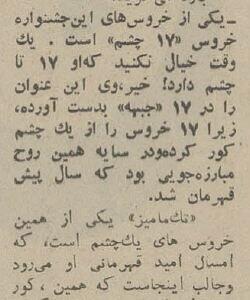 ـ یکی از خروس‌های این جشنواره
خروس «۱۷ چشم» است . یك
وقت خیال نکنید که او ۱۷ تا
چشم دارد! خیر، وی این عنوان
را در ۱۷ «جبهه» بدست آورده،
زیرا ۱۷ خروس را از یك چشم
کور کرده‌ودر سایه همین روح
مبارزه‌جویی بود که سال پیش
قهرمان شد.
«تك‌مامیز» یکی از همین
خروس های یك‌چشم است، که
امسال امید قهرمانی او می‌رود
وجالب اینجاست که همین ، کور